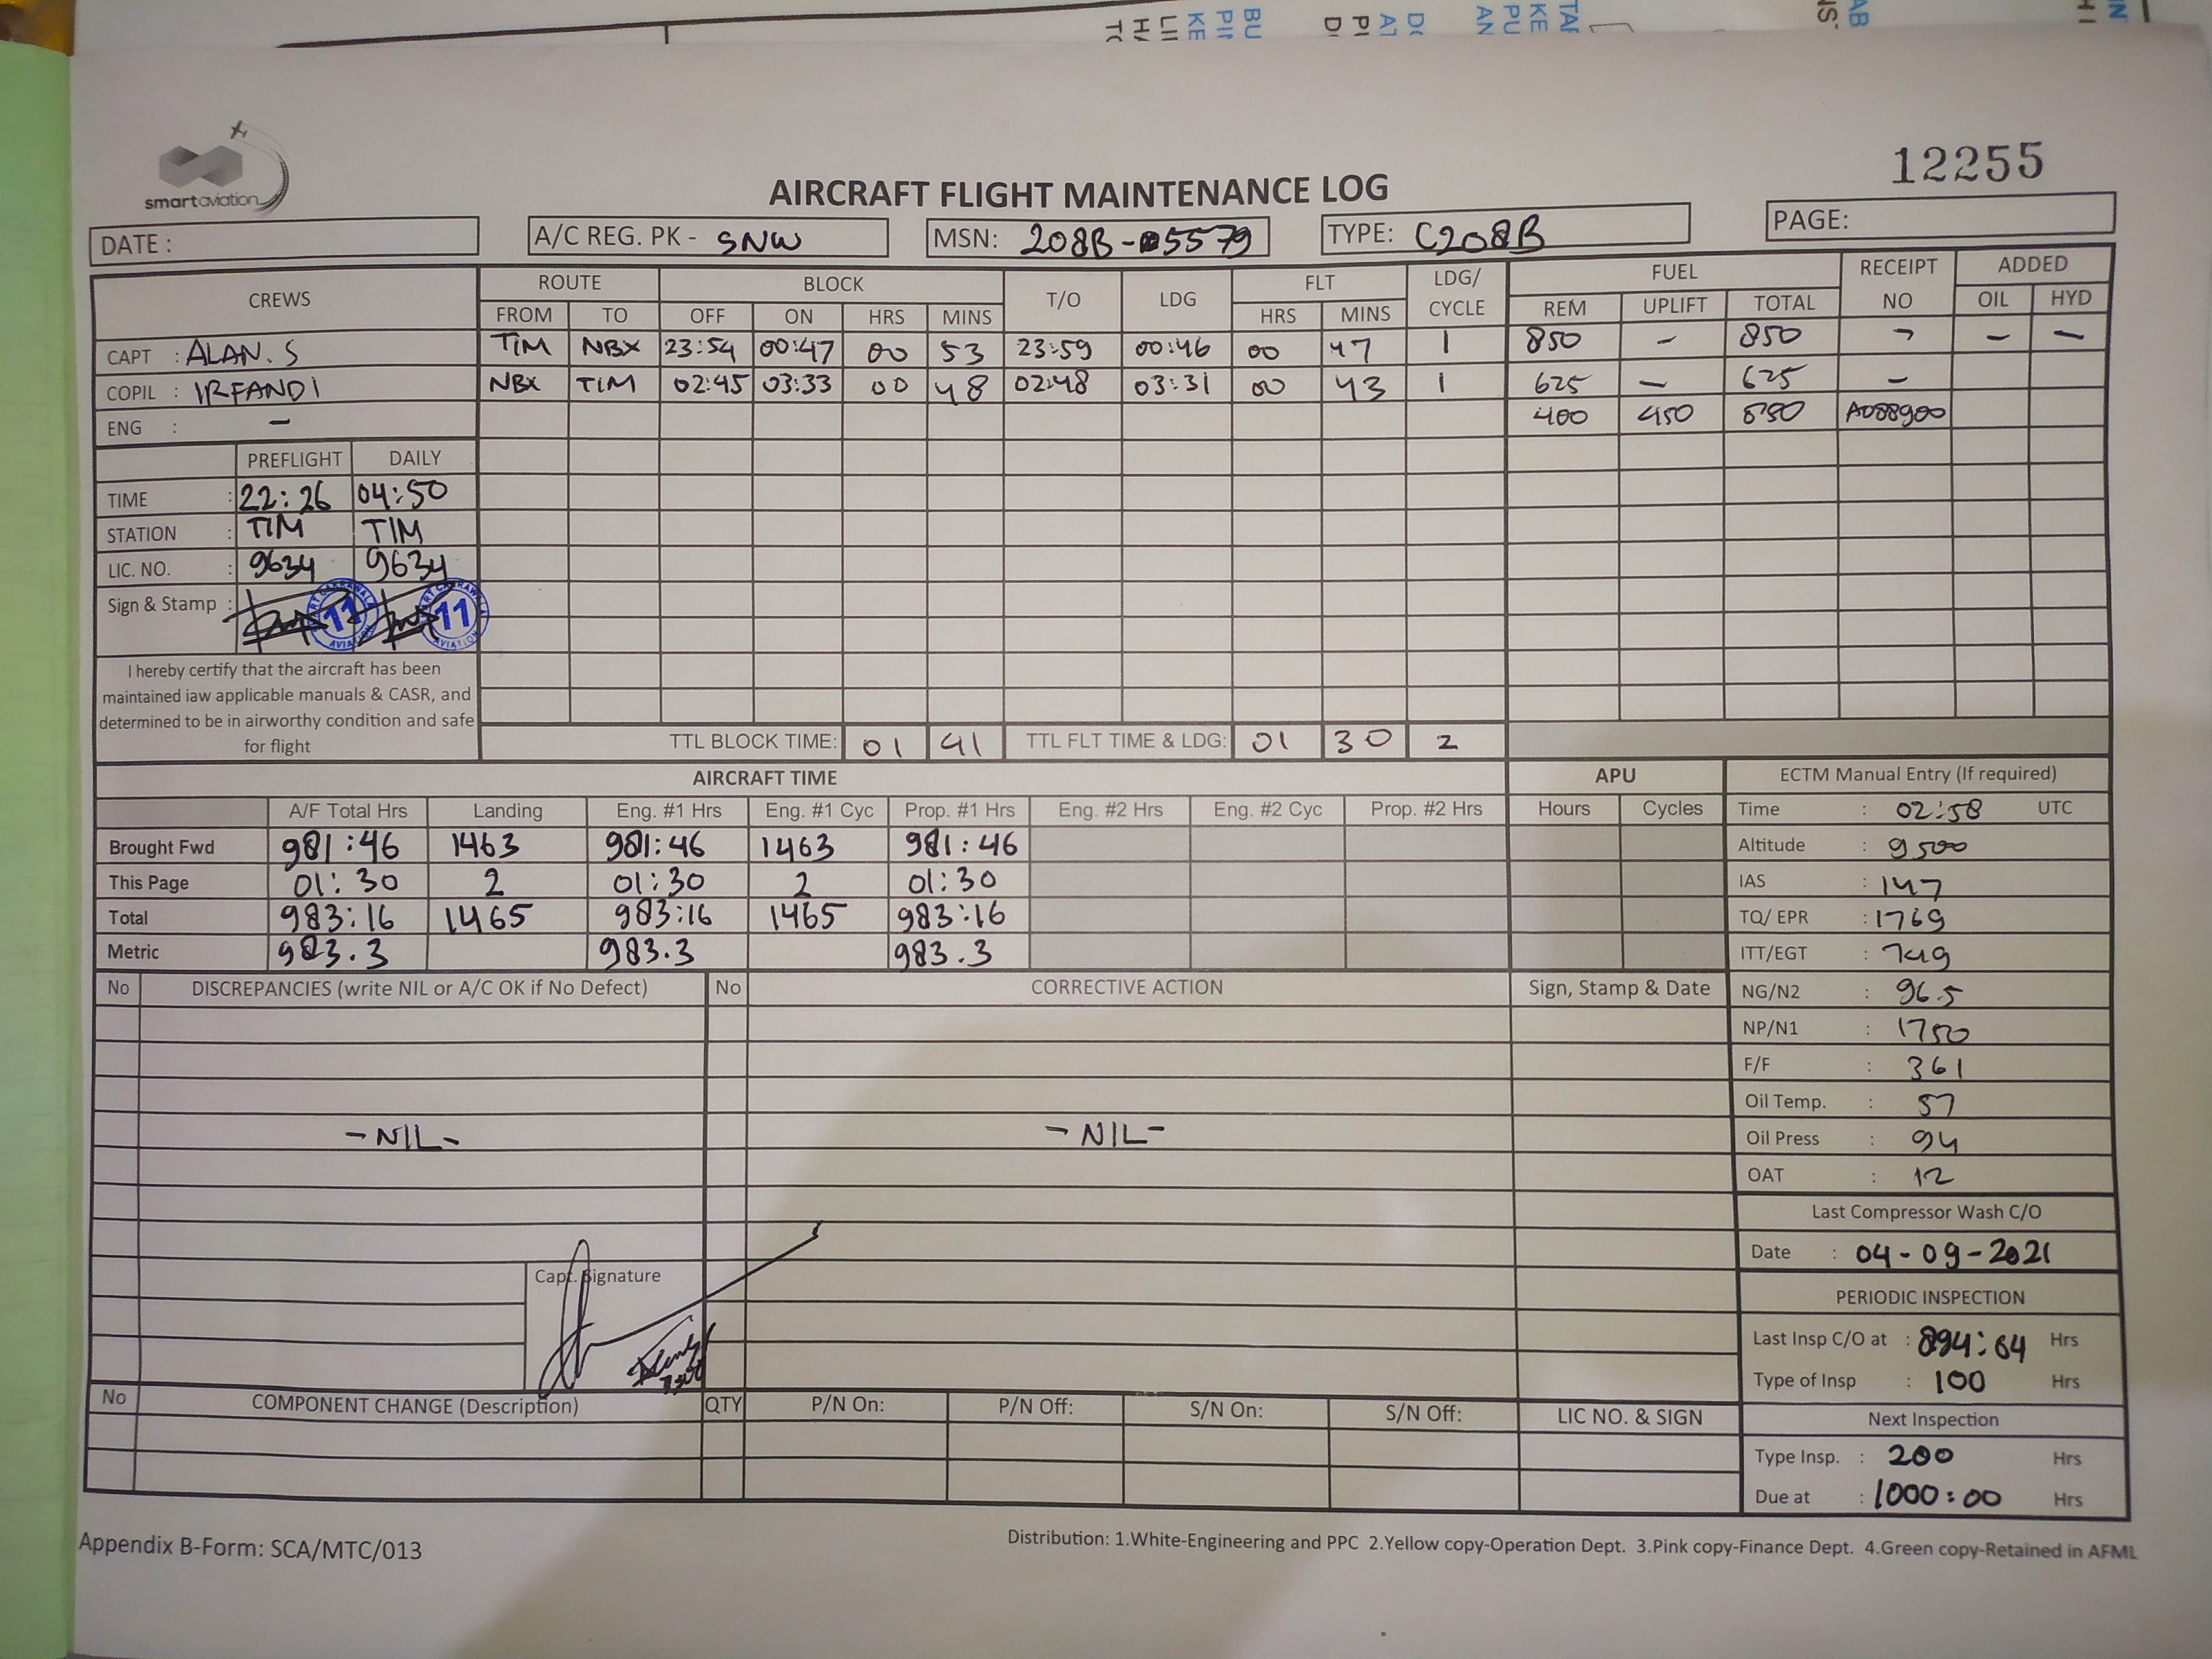 smartaviation
12255
AIRCRAFT FLIGHT MAINTENANCE LOG
DATE :
A/C REG. PK - SNW
MSN: 208B-5579
TYPE: C208B
PAGE:
CREWS ROUTE BLOCK T/O LDG FLT LDG/ CYCLE FUEL RECEIPT NO ADDED
FROM TO OFF ON HRS MINS HRS MINS REM UPLIFT TOTAL OIL HYD
CAPT : ALAN. S TIM NBX 23:54 00:47 00 53 23:59 00:46 00 47 1 850 - 850 - - -
COPIL : IRFANDI NBX TIM 02:45 03:33 00 48 02:48 03:31 00 43 1 625 - 625 -
ENG : - 400 450 850 A088900
PREFLIGHT DAILY
TIME : 22:26 04:50
STATION : TIM TIM
LIC. NO. : 9634 9634
Sign & Stamp : 11 11
I hereby certify that the aircraft has been
maintained iaw applicable manuals & CASR, and
determined to be in airworthy condition and safe
for flight
TTL BLOCK TIME: 01 41 TTL FLT TIME & LDG: 01 30 2
AIRCRAFT TIME APU
A/F Total Hrs Landing Eng. #1 Hrs Eng. #1 Cyc Prop. #1 Hrs Eng. #2 Hrs Eng. #2 Cyc Prop. #2 Hrs Hours Cycles
Brought Fwd 981:46 1463 981:46 1463 981:46
This Page 01:30 2 01:30 2 01:30
Total 983:16 1465 983:16 1465 983:16
Metric 983.3 983.3 983.3
ECTM Manual Entry (If required)
Time : 02:58 UTC
Altitude : 9500
IAS : 147
TQ/ EPR : 1769
ITT/EGT : 749
NG/N2 : 96.5
NP/N1 : 1750
F/F : 361
Oil Temp. : 57
Oil Press : 94
OAT : 12
No DISCREPANCIES (write NIL or A/C OK if No Defect) No CORRECTIVE ACTION Sign, Stamp & Date
- NIL - - NIL -
Capt. Signature
Last Compressor Wash C/O
Date : 04-09-2021
PERIODIC INSPECTION
Last Insp C/O at : 894:04 Hrs
Type of Insp : 100 Hrs
Next Inspection
Type Insp. : 200 Hrs
Due at : 1000:00 Hrs
No COMPONENT CHANGE (Description) QTY P/N On: P/N Off: S/N On: S/N Off: LIC NO. & SIGN
Appendix B-Form: SCA/MTC/013
Distribution: 1.White-Engineering and PPC 2.Yellow copy-Operation Dept. 3.Pink copy-Finance Dept. 4.Green copy-Retained in AFML